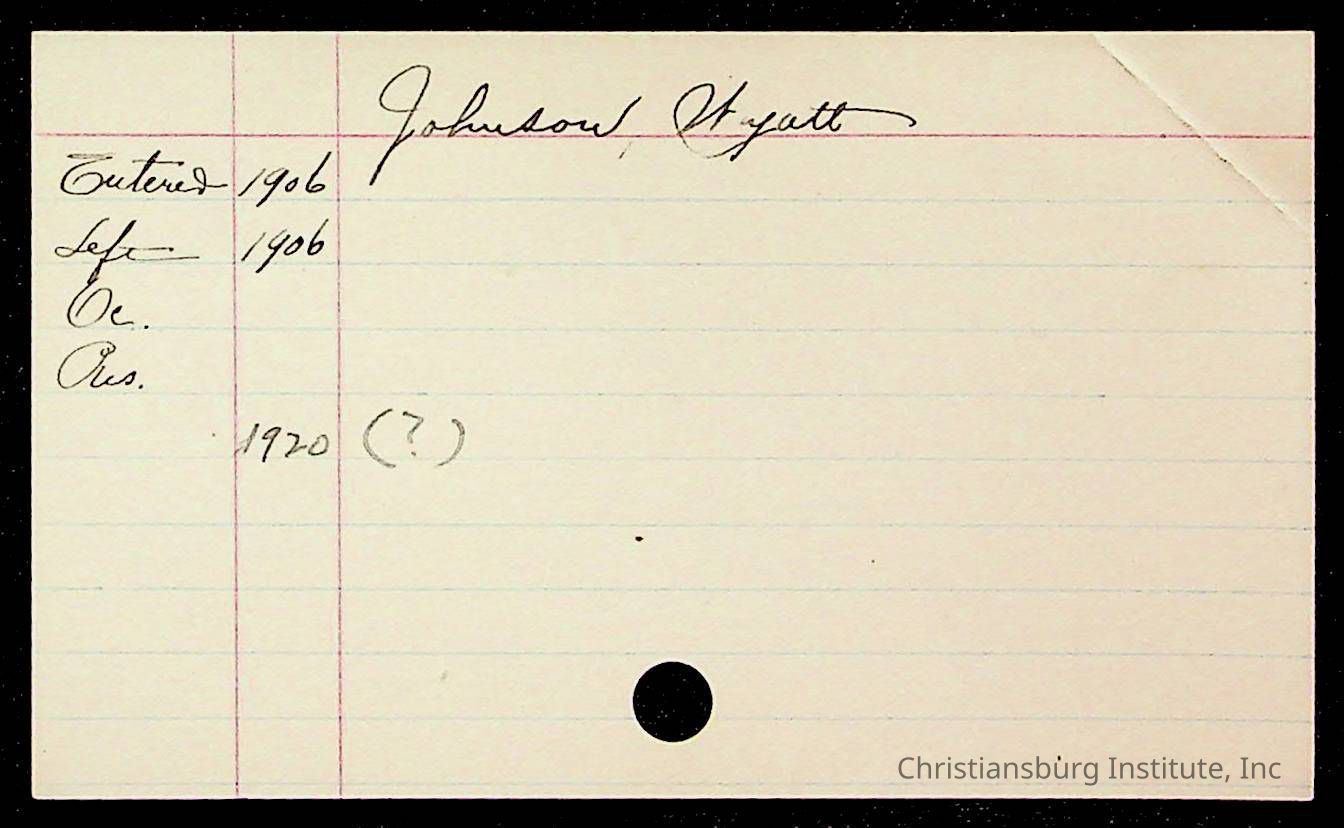 Johnson, Wyatt
Entered 1906
Left 1906
Oc.
Res.
1920 (?)
Christiansburg Institute, Inc